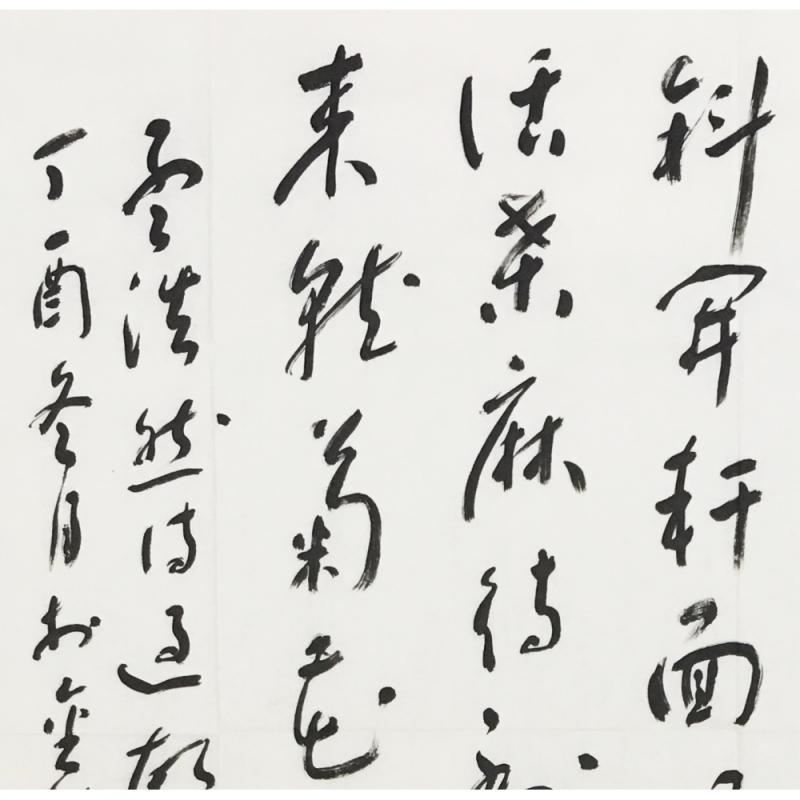 斜開軒面
話桑麻待到
來就菊花
孟浩然詩過故
丁酉冬月於金